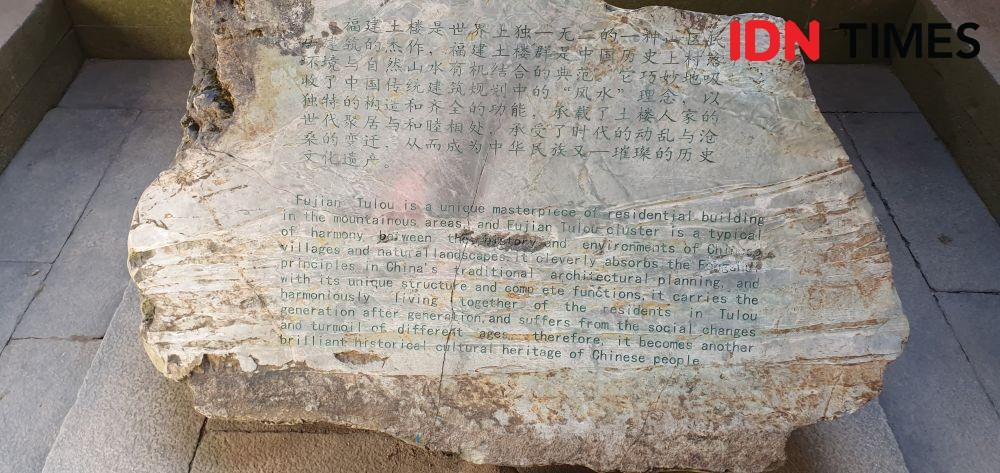 IDN TIMES
福建土楼是世界上独一无二的一种山区民
居建筑的杰作，福建土楼群是中国历史上村落
环境与自然山水有机结合的典范。它巧妙地吸
收了中国传统建筑规划中的“风水”理念，以
独特的构造和齐全的功能，承载了土楼人家的
世代聚居与和睦相处，承受了时代的动乱与沧
桑的变迁，从而成为中华民族又一璀璨的历史
文化遗产。
Fujian Tulou is a unique masterpiece of residential building
in the mountainous areas, and Fujian Tulou cluster is a typical
of harmony between the history and environments of Chinese
villages and natural landscapes. It cleverly absorbs the
principles in China's traditional architectural planning, and
with its unique structure and comp ete functions, it carries the
harmoniously living together of the residents in Tulou
generation after generation, and suffers from the social changes
and turmoil of different ages, therefore, it becomes another
brilliant historical cultural heritage of Chinese people